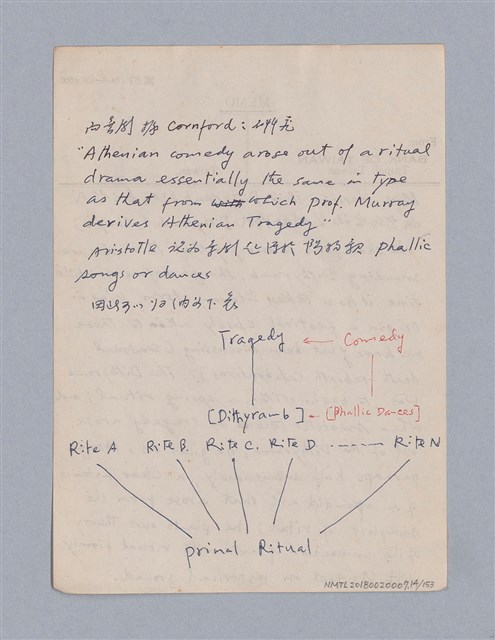 而喜劇 據 Cornford: 研究
"Athenian comedy arose out of a ritual
drama essentially the same in type
as that from which Prof. Murray
derives Athenian Tragedy"
Aristotle 認為喜劇起源於 陽物歌 phallic
songs or dances
因此可以归纳如下表
Tragedy ← Comedy
[Dithyramb] ← [Phallic Dances]
Rite A Rite B. Rite C. Rite D ----- Rite N
primal Ritual
NMTL20180020007.14/153